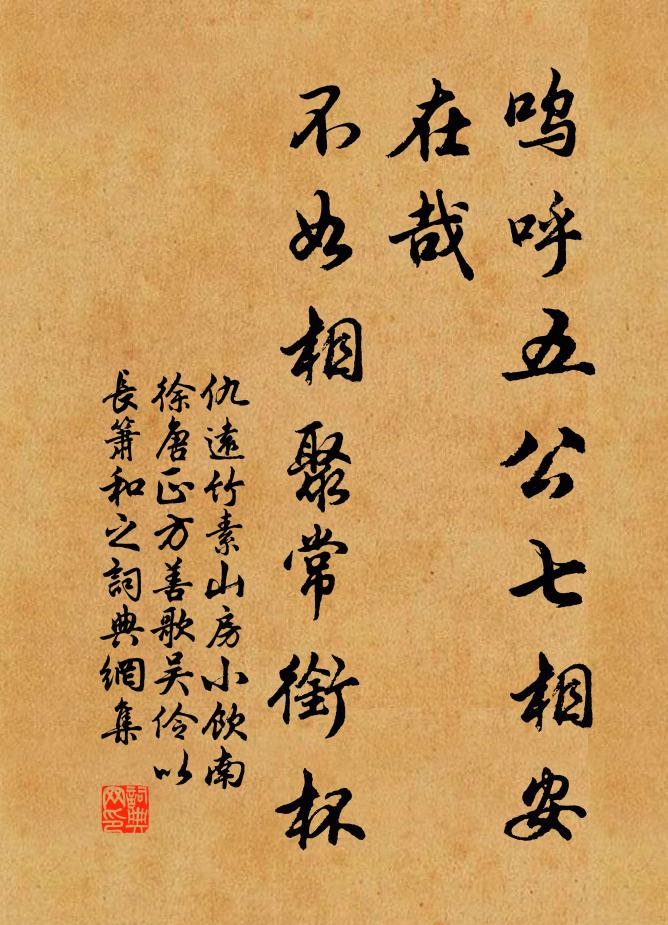 嗚呼五公七相安
在哉
不如相聚常銜杯
仇遠竹素山房小飲南
徐唐正方善歌吳伶以
長簫和之詞典網集
詞典
网印